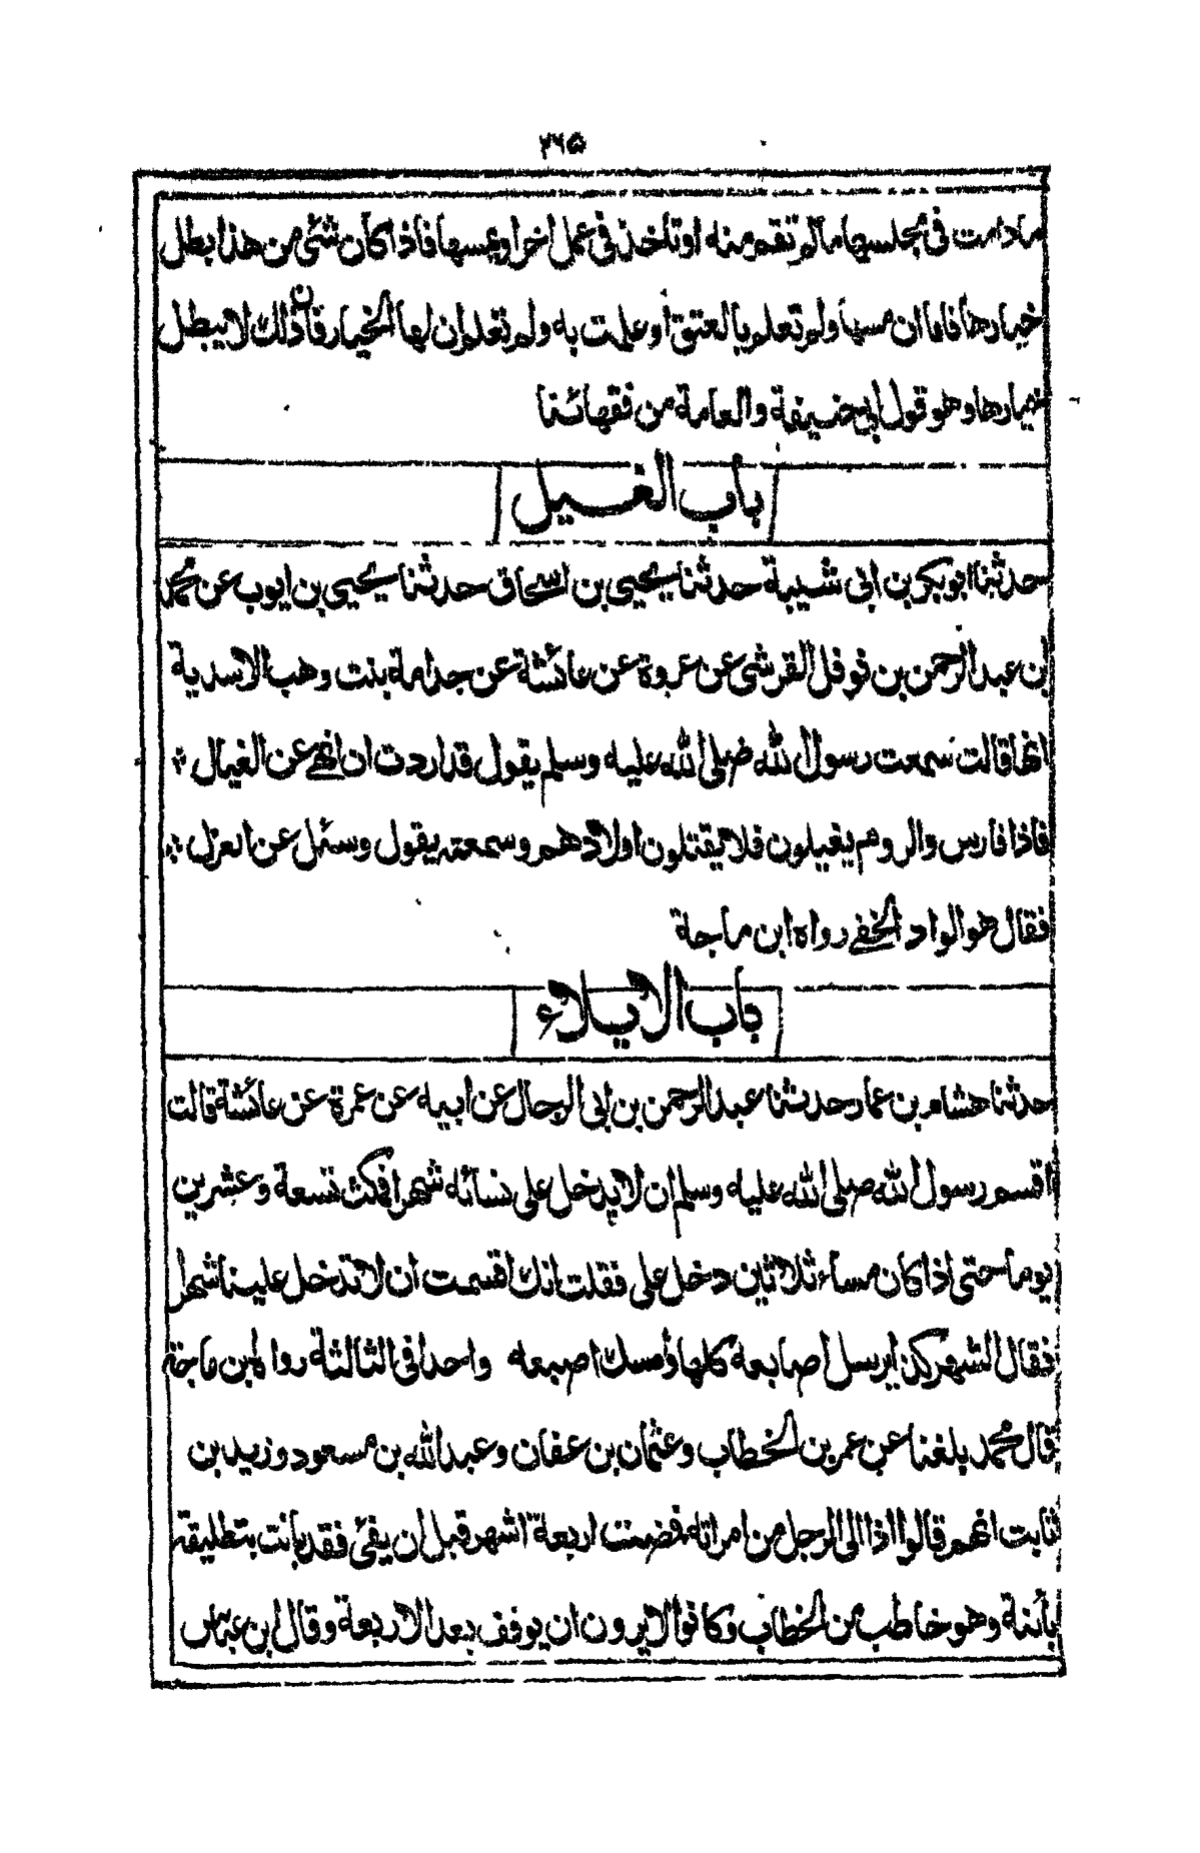 ۲۶۵
مادامت فی مجلسها مالم تقم منه اوتاخذ فی عمل اخر او یمسها فاذا کان شئی من هذا بطل
خیارها فاما ان مسها ولم تعلم بالعتق او علمت به ولم تعلم ان لها الخیار فان ذلك لا یبطل
خیارها وهو قول ابی حنیفة والعامة من فقهائنا
باب الغیل
حدثنا ابوبکر بن ابی شیبة حدثنا یحیی بن اسحاق حدثنا یحیی بن ایوب عن محمد
ابن عبدالرحمن بن نوفل القرشی عن عروة عن عائشة عن جدامة بنت وهب الاسدیة
انها قالت سمعت رسول الله صلی الله علیه وسلم یقول قد اردت ان انهی عن الغیال
فاذا فارس والروم یغیلون فلا یقتلون اولادهم وسمعته یقول وسئل عن العزل
فقال هو الواد الخفی رواه ابن ماجة
باب الایلاء
حدثنا هشام بن عمار حدثنا عبدالرحمن بن ابی الرجال عن ابیه عن عمرة عن عائشة قالت
اقسم رسول الله صلی الله علیه وسلم ان لا یدخل علی نسائه شهرا فمکث تسعة وعشرین
یوما حتی اذا کان مساء ثلاثین دخل علی فقلت انك اقسمت ان لا تدخل علینا شهرا
فقال الشهر کذا یرسل اصابعه کلها وامسك اصبعه واحدا فی الثالثة رواه ابن ماجة
قال محمد بلغنا عن عمر بن الخطاب وعثمان بن عفان وعبدالله بن مسعود وزید بن
ثابت انهم قالوا اذا الی الرجل من امراته فمضت اربعة اشهر قبل ان یفئ فقد بانت بتطلیقة
بائنة وهو خاطب من الخطاب وکانوا لا یرون ان یوقف بعد الاربعة وقال ابن عباس